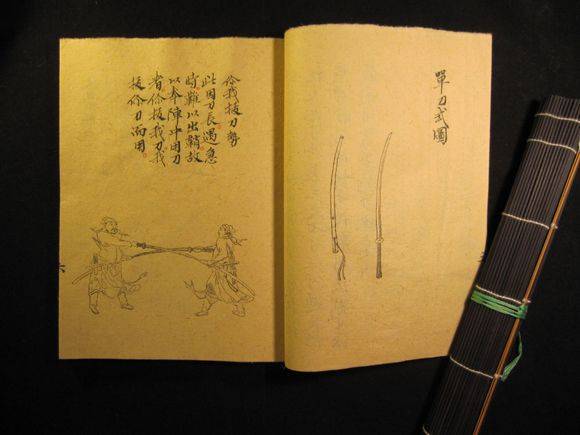 單刀式圖
你我拔刀勢
此因刀長遇急
時難以出鞘故
以本陣中用刀
者你拔我刀我
拔你刀而用